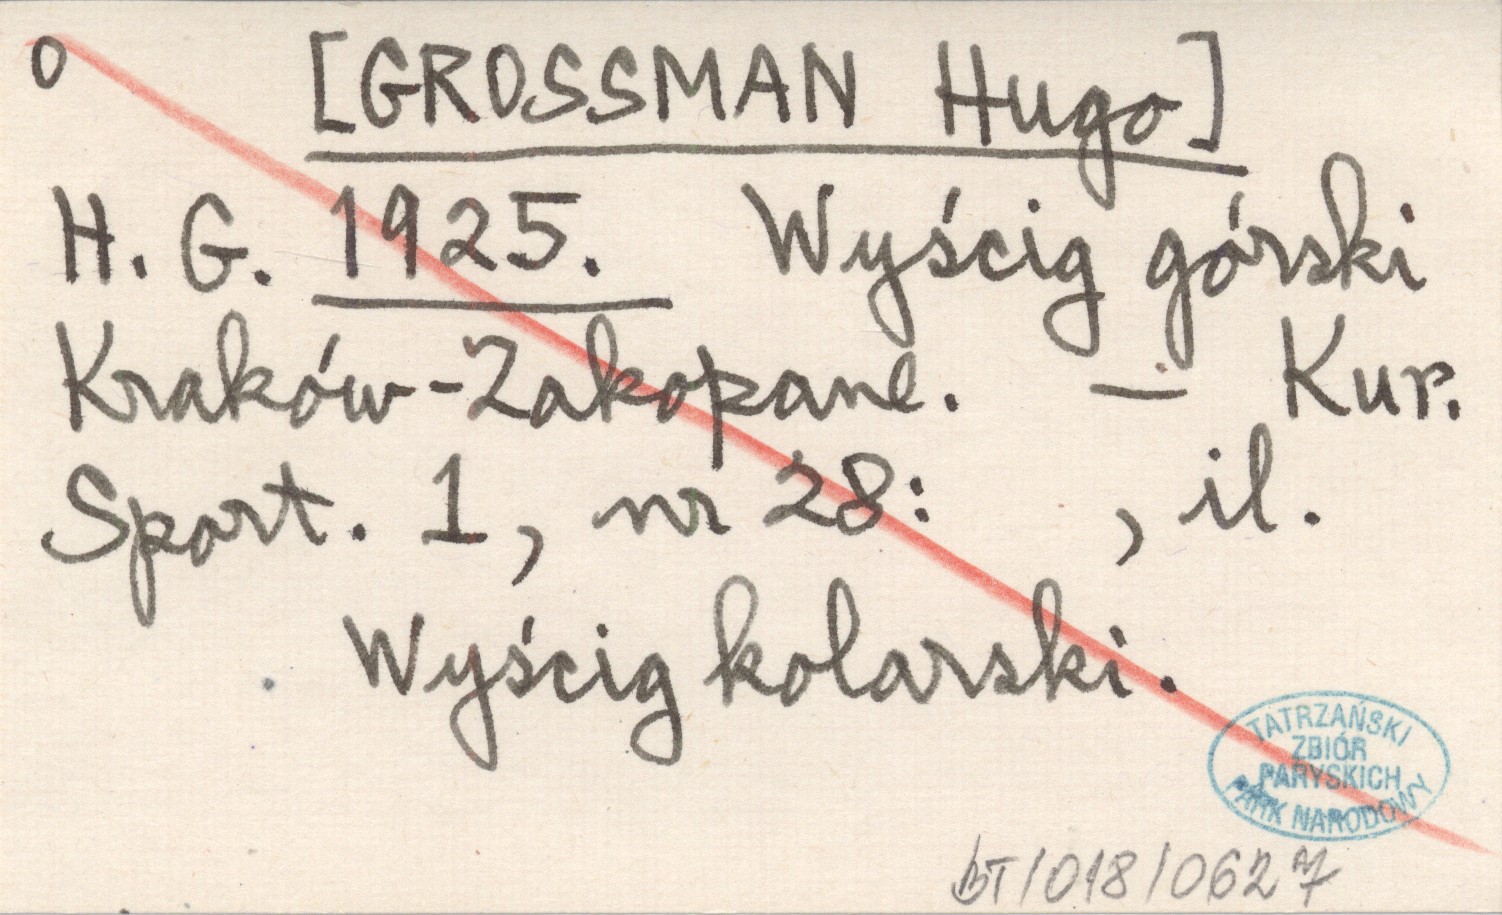 o [GROSSMAN Hugo]
H. G. 1925. Wyścig górski
Kraków-Zakopane. — Kur.
Sport. 1, nr 28: , il.
Wyścig kolarski.
TATRZAŃSKI
ZBIÓR
PARYSKICH
PARK NARODOWY
BT/018/0627